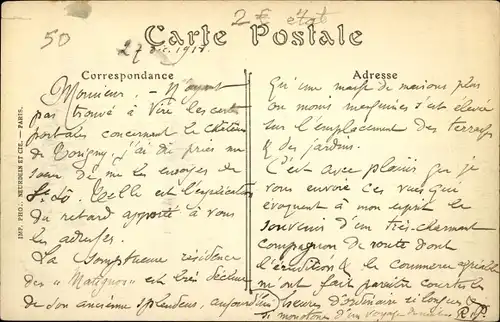 50
2 € état
Carte Postale
27 Déc. 1911.
Correspondance
Adresse
IMP. PHO. NEURDEIN ET CIE. — PARIS.
Monsieur. — N'ayant
pas trouvé à Vire les cartes
postales concernant le château
de Torigny, j'ai dû prier ma
sœur de me les envoyer de
St. Lô. Telle est l'explication
du retard apporté à vous
les adresser.
La somptueuse résidence
des "Matignon" est très déchue
de son ancienne splendeur, aujourd'hui
Qu'une masse de maisons plus
ou moins mesquines s'est élevée
sur l'emplacement des terrasses
& des jardins.
C'est avec plaisir que je
vous envoie ces vues qui
évoquent à mon esprit le
souvenir d'un très charmant
compagnon de route dont
l'érudition & le commerce agréable
m'ont fait paraître courtes les
heures d'ordinaire si longues &
si monotones d'un voyage de